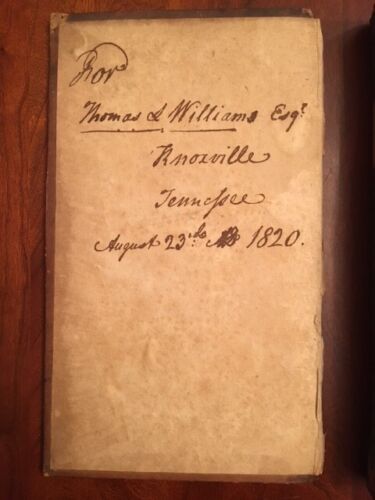 For
Thomas L Williams Esqr
Knoxville
Tennessee
August 23rd 1820.